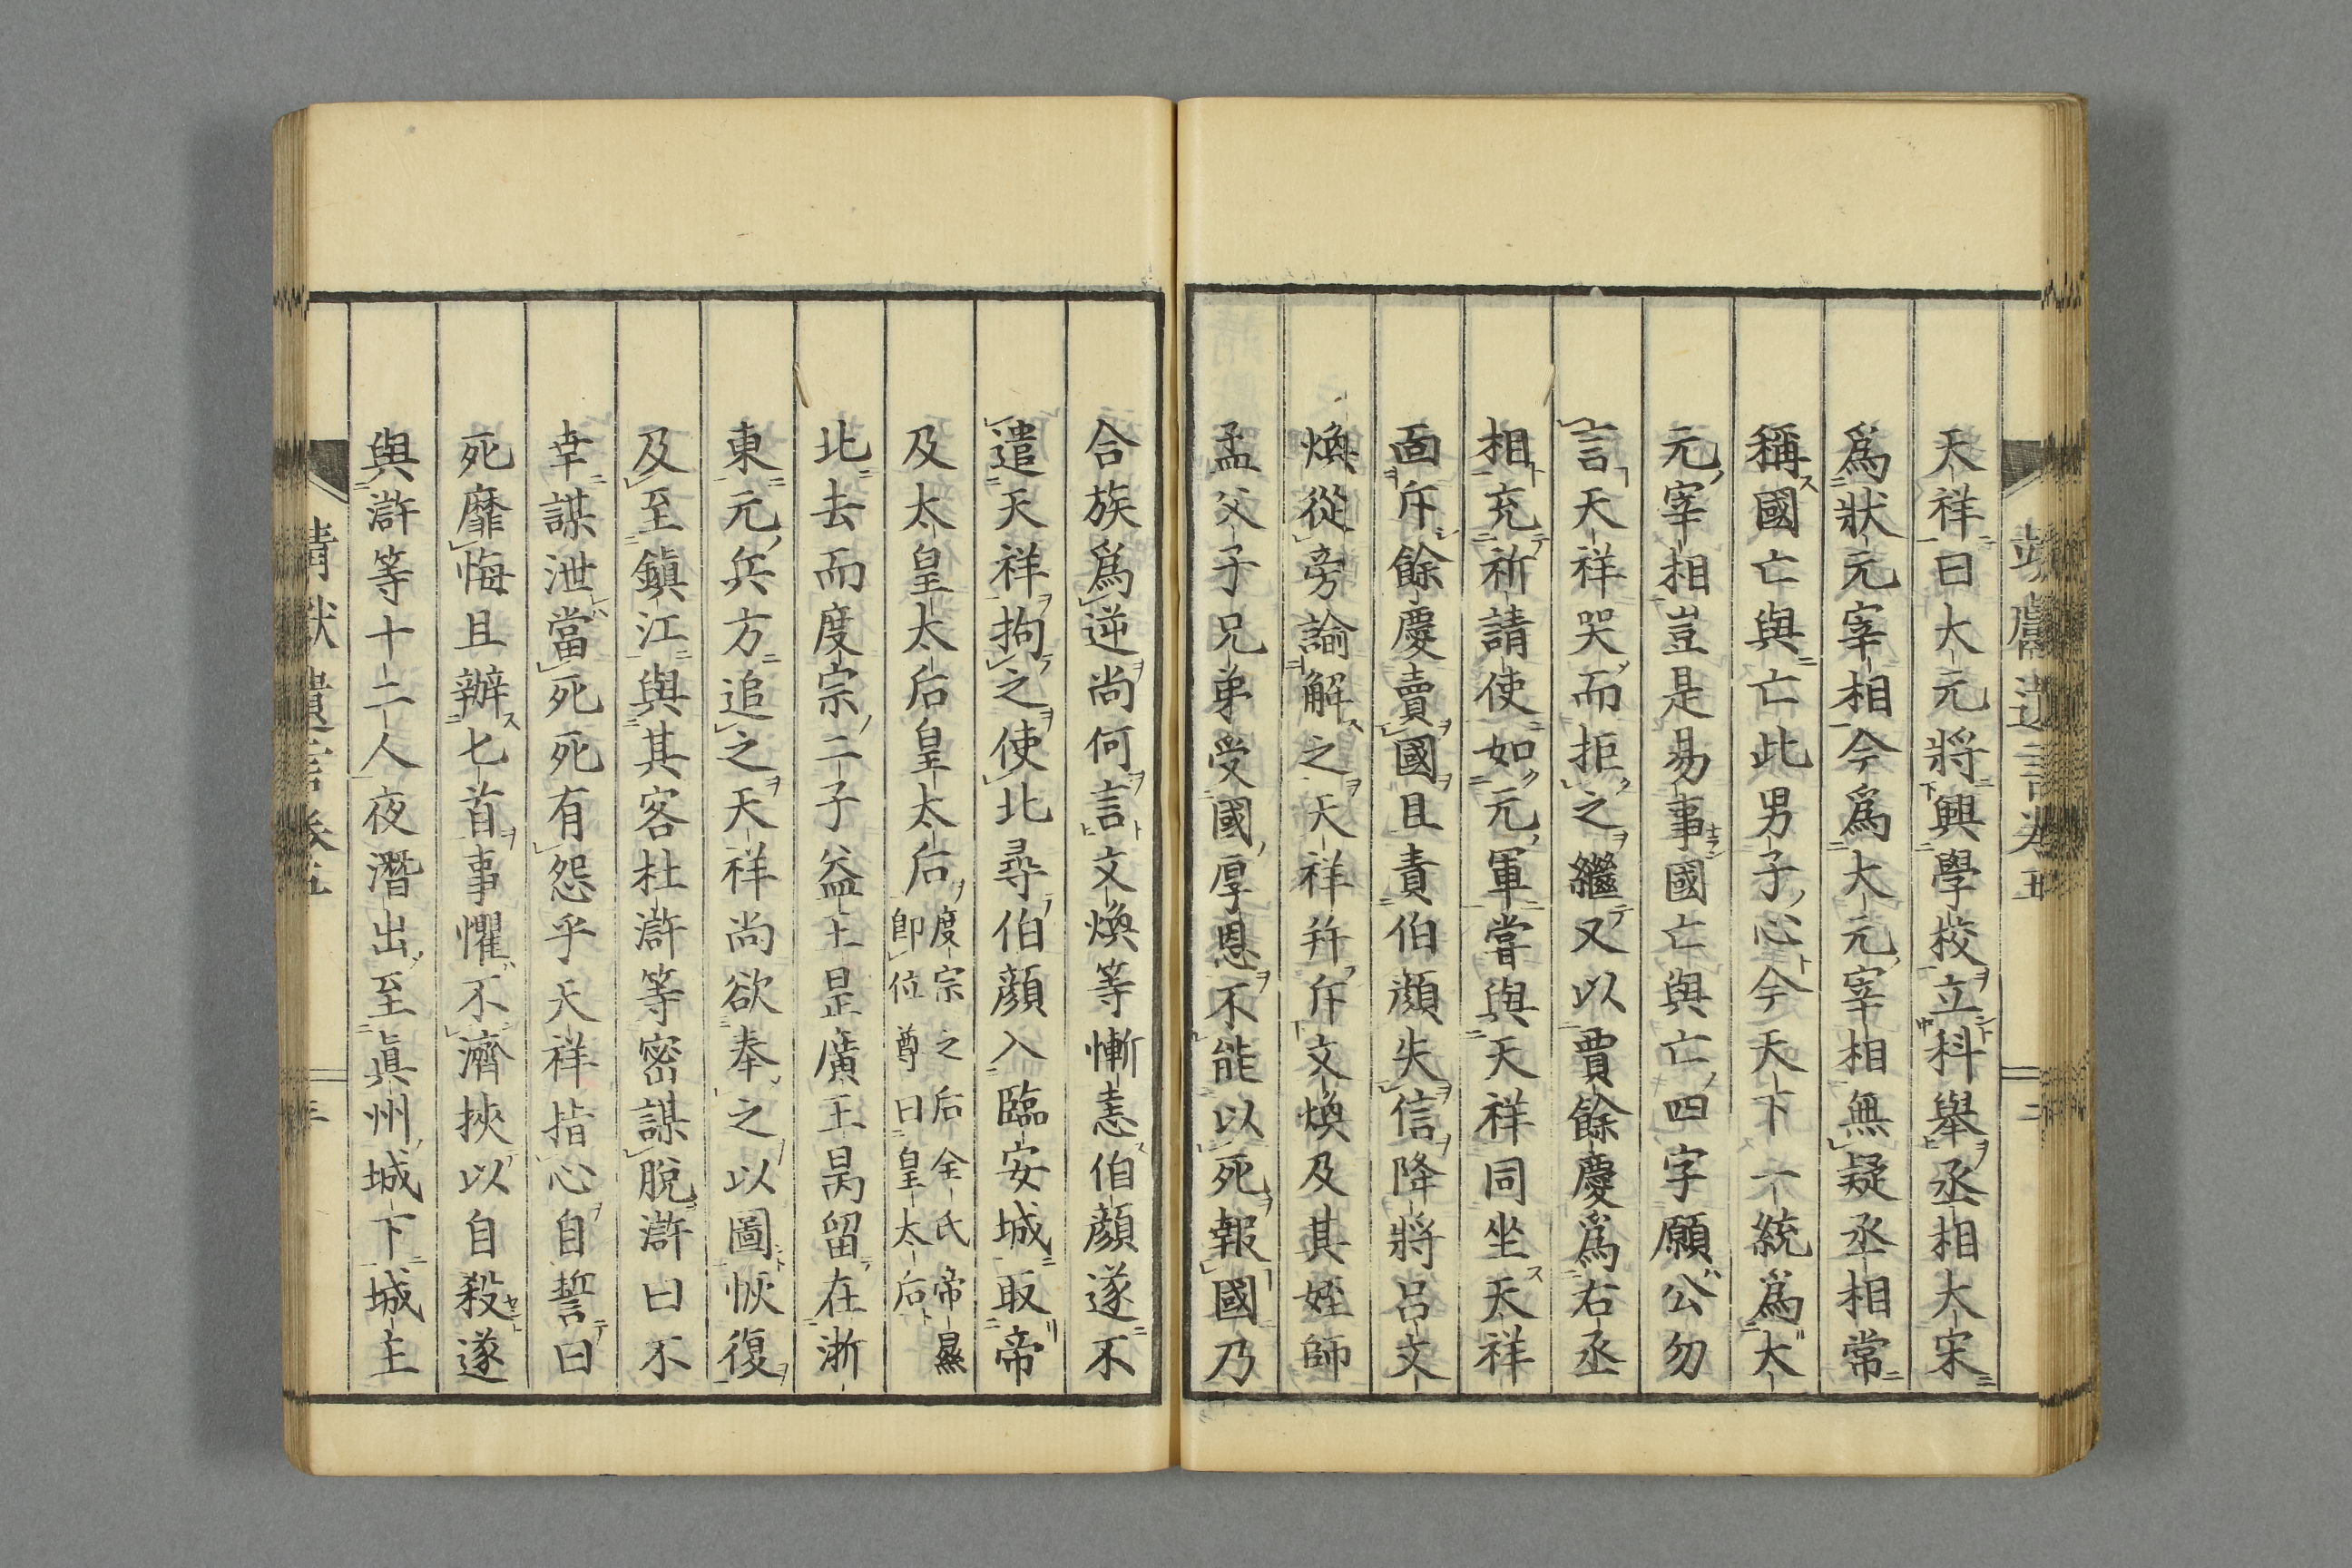 天祥曰大元將興學校立科舉丞相大宋
爲狀元宰相今爲大元宰相無疑丞相常
稱國亡與亡此男子心今天下一統爲大
元宰相豈是易事國亡與亡四字願公勿
言天祥哭而拒之繼又以賈餘慶爲右丞
相充祈請使如元軍嘗與天祥同坐天祥
面斥餘慶賣國且責伯顔失信降將呂文
煥從旁諭解之天祥幷斥文煥及其姪師
孟父子兄弟受國厚恩不能以死報國乃
合族爲逆尚何言文煥等慚恚伯顔遂不
遣天祥拘之使北尋伯顔入臨安城取帝
及太皇太后皇太后度宗之后全氏帝㬎即位尊曰皇太后
北去而度宗二子益王昰廣王昺留在浙
東元兵方追之天祥尚欲奉之以圖恢復
及至鎭江與其客杜滸等密謀脫滸曰不
幸謀泄當死死有怨乎天祥指心自誓曰
死靡悔且辦匕首事懼不濟挾以自殺遂
與滸等十二人夜潛出至眞州城下城主
靖獻遺言卷五
三